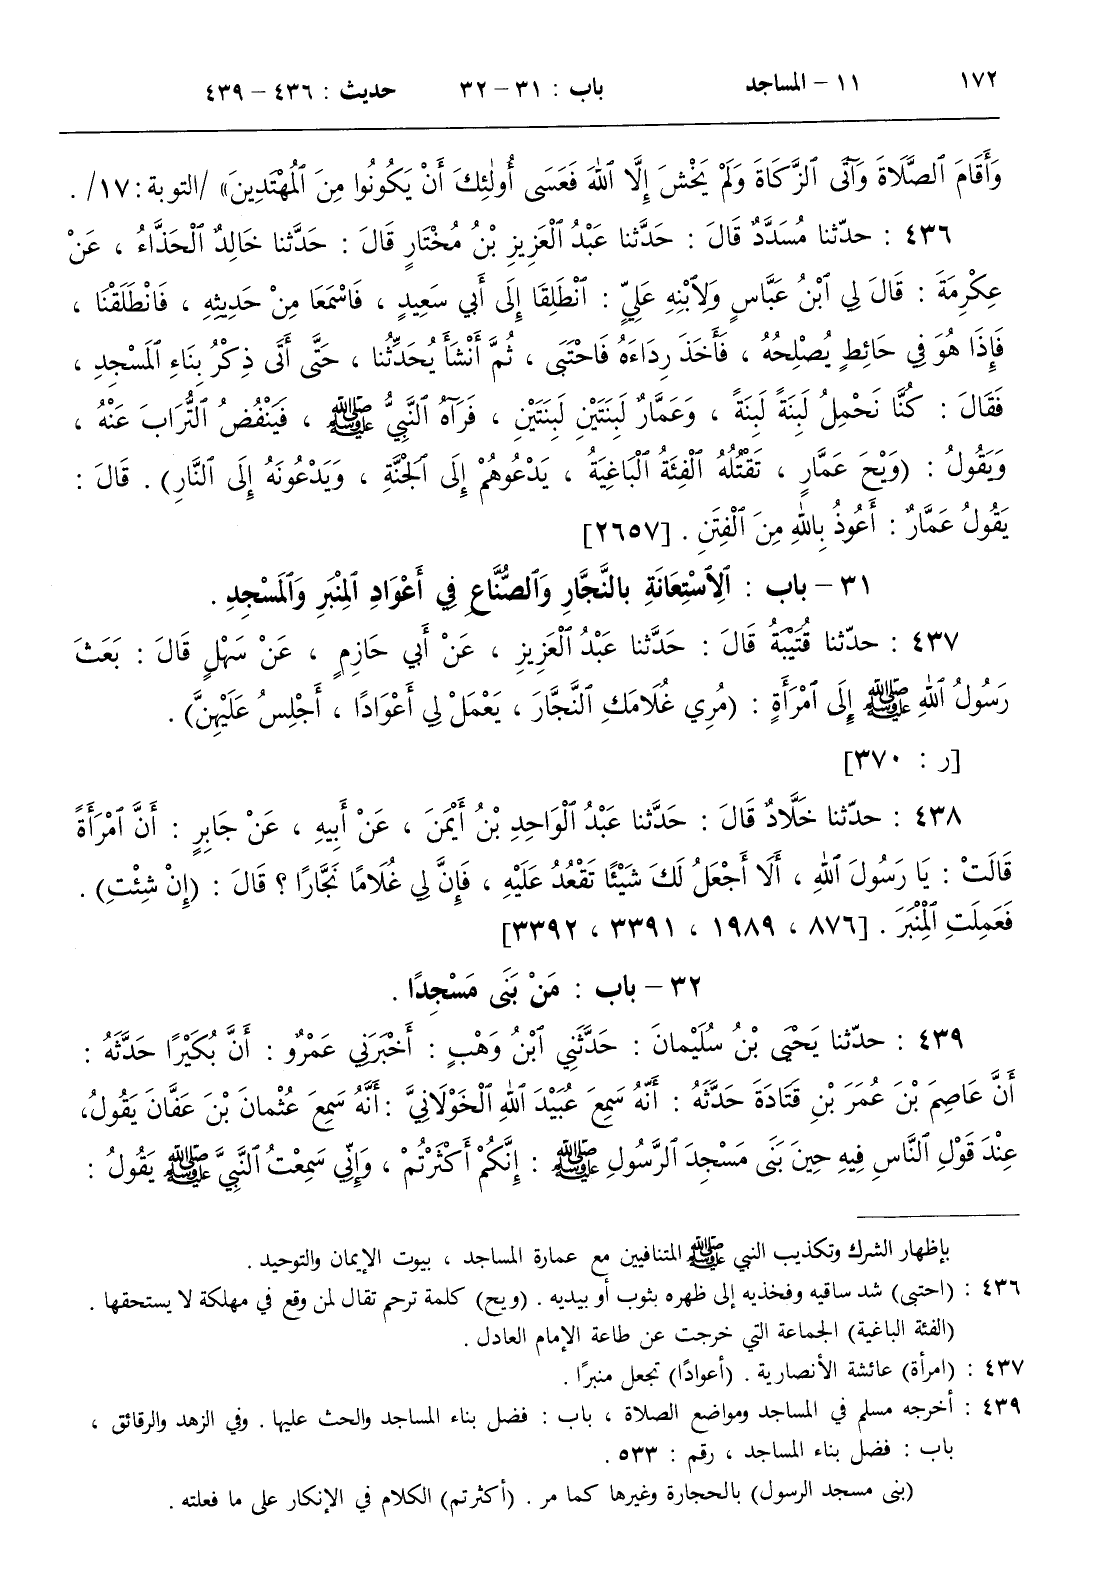 ١٧٢ ١١ – المساجد باب : ٣١ – ٣٢ حديث : ٤٣٦ – ٤٣٩
وَأَقَامَ ٱلصَّلَاةَ وَآتَى ٱلزَّكَاةَ وَلَمْ يَخْشَ إِلَّا ٱللهَ فَعَسَى أُولَئِكَ أَنْ يَكُونُوا مِنَ ٱلْمُهْتَدِينَ» /التوبة: ١٧/ .
٤٣٦ : حدّثنا مُسَدَّدٌ قَالَ : حَدَّثنا عَبْدُ ٱلْعَزِيزِ بْنُ مُخْتَارٍ قالَ : حَدَّثنا خَالِدٌ ٱلْحَذَّاءُ ، عَنْ
عِكْرِمَةَ : قَالَ لِي ٱبْنُ عَبَّاسٍ وَلِٱبْنِهِ عَلِيٍّ : ٱنْطَلِقَا إِلَى أَبِي سَعِيدٍ ، فَاسْمَعَا مِنْ حَدِيثِهِ ، فَانْطَلَقْنَا ،
فَإِذَا هُوَ فِي حَائِطٍ يُصْلِحُهُ ، فَأَخَذَ رِدَاءَهُ فَاحْتَبَى ، ثُمَّ أَنْشَأَ يُحَدِّثُنا ، حَتَّى أَتَى ذِكْرُ بِنَاءِ ٱلْمَسْجِدِ ،
فَقَالَ : كُنَّا نَحْمِلُ لَبِنَةً لَبِنَةً ، وَعَمَّارٌ لَبِنَتَيْنِ لَبِنَتَيْنِ ، فَرَآهُ ٱلنَّبِيُّ ﷺ ، فَيَنْفُضُ ٱلتُّرَابَ عَنْهُ ،
وَيَقُولُ : (وَيْحَ عَمَّارٍ ، تَقْتُلُهُ ٱلْفِئَةُ ٱلْبَاغِيَةُ ، يَدْعُوهُمْ إِلَى ٱلْجَنَّةِ ، وَيَدْعُونَهُ إِلَى ٱلنَّارِ) . قَالَ :
يَقُولُ عَمَّارٌ : أَعُوذُ بِاللهِ مِنَ ٱلْفِتَنِ . [٢٦٥٧]
٣١ – باب : ٱلِٱسْتِعَانَةِ بِالنَّجَّارِ وَٱلصُّنَّاعِ فِي أَعْوَادِ ٱلْمِنْبَرِ وَٱلْمَسْجِدِ .
٤٣٧ : حدّثنا قُتَيْبَةُ قَالَ : حَدَّثنا عَبْدُ ٱلْعَزِيزِ ، عَنْ أَبي حَازِمٍ ، عَنْ سَهْلٍ قَالَ : بَعَثَ
رَسُولُ ٱللهِ ﷺ إِلَى ٱمْرَأَةٍ : (مُرِي غُلَامَكِ ٱلنَّجَّارَ ، يَعْمَلْ لِي أَعْوَادًا ، أَجْلِسُ عَلَيْهِنَّ) .
[ر : ٣٧٠]
٤٣٨ : حدّثنا خَلَّادٌ قَالَ : حَدَّثنا عَبْدُ ٱلْوَاحِدِ بْنُ أَيْمَنَ ، عَنْ أَبِيهِ ، عَنْ جَابِرٍ : أَنَّ ٱمْرَأَةً
قَالَتْ : يَا رَسُولَ ٱللهِ ، أَلَا أَجْعَلُ لَكَ شَيْئًا تَقْعُدُ عَلَيْهِ ، فَإِنَّ لِي غُلَامًا نَجَّارًا ؟ قَالَ : (إِنْ شِئْتِ) .
فَعَمِلَتِ ٱلْمِنْبَرَ . [٨٧٦ ، ١٩٨٩ ، ٣٣٩١ ، ٣٣٩٢]
٣٢ – باب : مَنْ بَنَى مَسْجِدًا .
٤٣٩ : حدّثنا يَحْيَى بْنُ سُلَيْمانَ : حَدَّثَنِي ٱبْنُ وَهْبٍ : أَخْبَرَنِي عَمْرٌو : أَنَّ بُكَيْرًا حَدَّثَهُ :
أَنَّ عَاصِمَ بْنَ عُمَرَ بْنِ قَتَادَةَ حَدَّثَهُ : أَنَّهُ سَمِعَ عُبَيْدَ ٱللهِ ٱلْخَوْلَانِيَّ : أَنَّهُ سَمِعَ عُثْمانَ بْنَ عَفَّانَ يَقُولُ،
عِنْدَ قَوْلِ ٱلنَّاسِ فِيهِ حِينَ بَنَى مَسْجِدَ ٱلرَّسُولِ ﷺ : إِنَّكُمْ أَكْثَرْتُمْ ، وَإِنِّي سَمِعْتُ ٱلنَّبِيَّ ﷺ يَقُولُ :
بإظهار الشرك وتكذيب النبي ﷺ المتنافيين مع عمارة المساجد ، بيوت الإيمان والتوحيد .
٤٣٦ : (احتبى) شد ساقيه وفخذيه إلى ظهره بثوب أو بيديه . (ويح) كلمة ترحم تقال لمن وقع في مهلكة لا يستحقها .
(الفئة الباغية) الجماعة التي خرجت عن طاعة الإمام العادل .
٤٣٧ : (امرأة) عائشة الأنصارية . (أعوادًا) تجعل منبرًا .
٤٣٩ : أخرجه مسلم في المساجد ومواضع الصلاة ، باب : فضل بناء المساجد والحث عليها . وفي الزهد والرقائق ،
باب : فضل بناء المساجد ، رقم : ٥٣٣ .
(بنى مسجد الرسول) بالحجارة وغيرها كما مر . (أكثرتم) الكلام في الإنكار على ما فعلته .